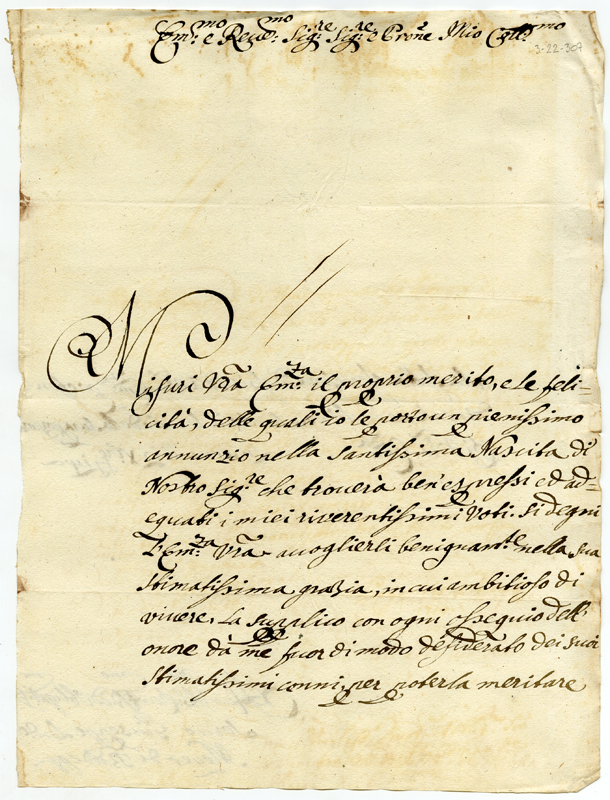 Em.mo e Reu.mo Sig.re Sig.re e Prone Mio Coll.mo
3-22-307
Misuri Vrã Em.za il proprio merito, e le feli-
cità, delle quali io le porto un pienissimo
annunzio nella Santissima Nascita di
Nostro Sig.re che trouerà ben'espressi ed ad-
equati i miei riuerentissimi Voti. Si degni
l'Em.za Vrã accoglierli benignam.te nella sua
stimatissima grazia, in cui ambitioso di
viuere, La supplico con ogni ossequio dell'
onore dà me fuor di modo desiderato dei suoi
stimatissimi cenni, per poterla meritare